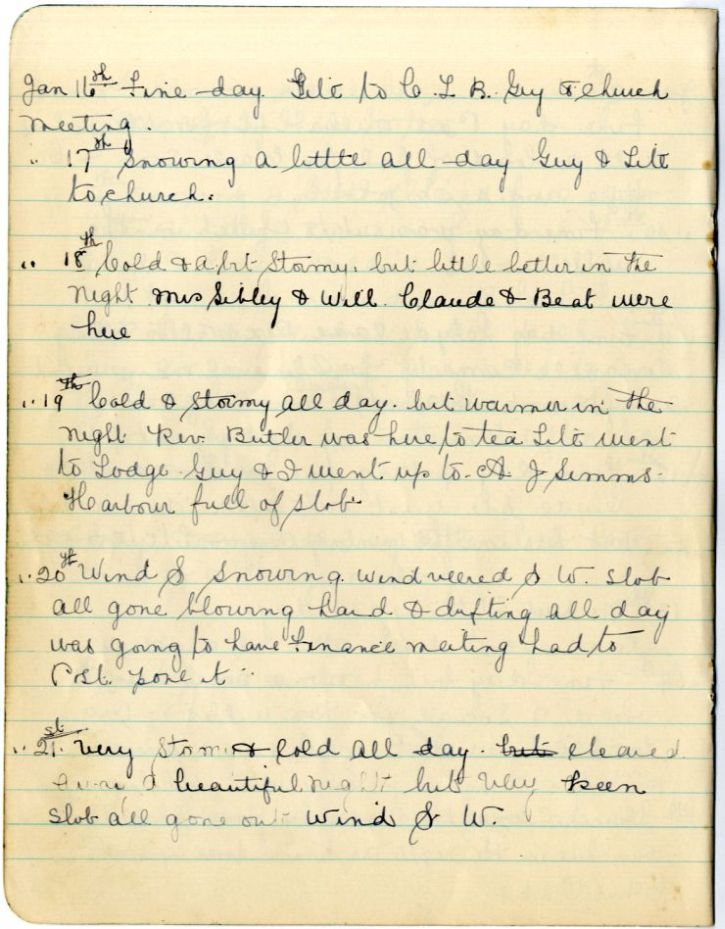 Jan 16th Fine day. Lilt to C. L. B. Guy & church
meeting.
" 17th Snowing a little all day Guy & Lilt
to church.
" 18th Cold & a bit Stormy, but little better in the
night. Mrs Sibley & Will. Claude & Beat were
here
" 19th Cold & Stormy all day. but warmer in the
night Rev. Butler was here to tea Lilt went
to Lodge. Guy & I went up to A J Simms.
Harbour full of slob.
" 20th Wind S Snowing. wind veered S W. slob
all gone blowing hard & drifting all day
was going to have Finance meeting had to
Post. pone it
" 21st. Very & cold all day. but cleared
beautiful night but very keen
Slob all gone out Wind S W.